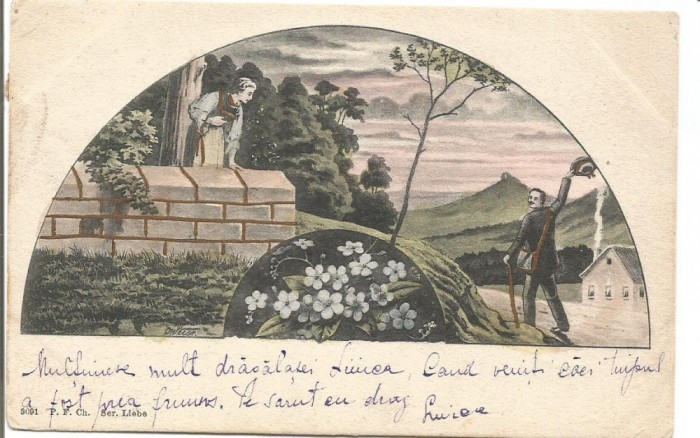 Mulțumesc mult drăcălașei Luica, Cand veniți căci timpul
a fost prea frumos. Te sărut cu drag
Luica
5091 P. F. Ch. Ser. Liebe